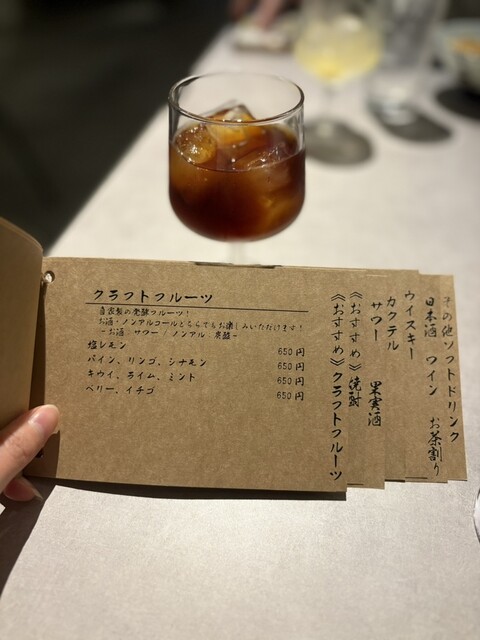 クラフトフルーツ
自家製の発酵フルーツ！
お酒・ノンアルコールどちらでもお楽しみいただけます！
~お酒：サワー / ノンアル：炭酸~
塩レモン 650円
パイン、リンゴ、シナモン 650円
キウイ、ライム、ミント 650円
ベリー、イチゴ 650円
《おすすめ》クラフトフルーツ
《おすすめ》焼酎
サワー 果実酒
カクテル
ウイスキー
日本酒 ワイン お茶割り
その他ソフトドリンク